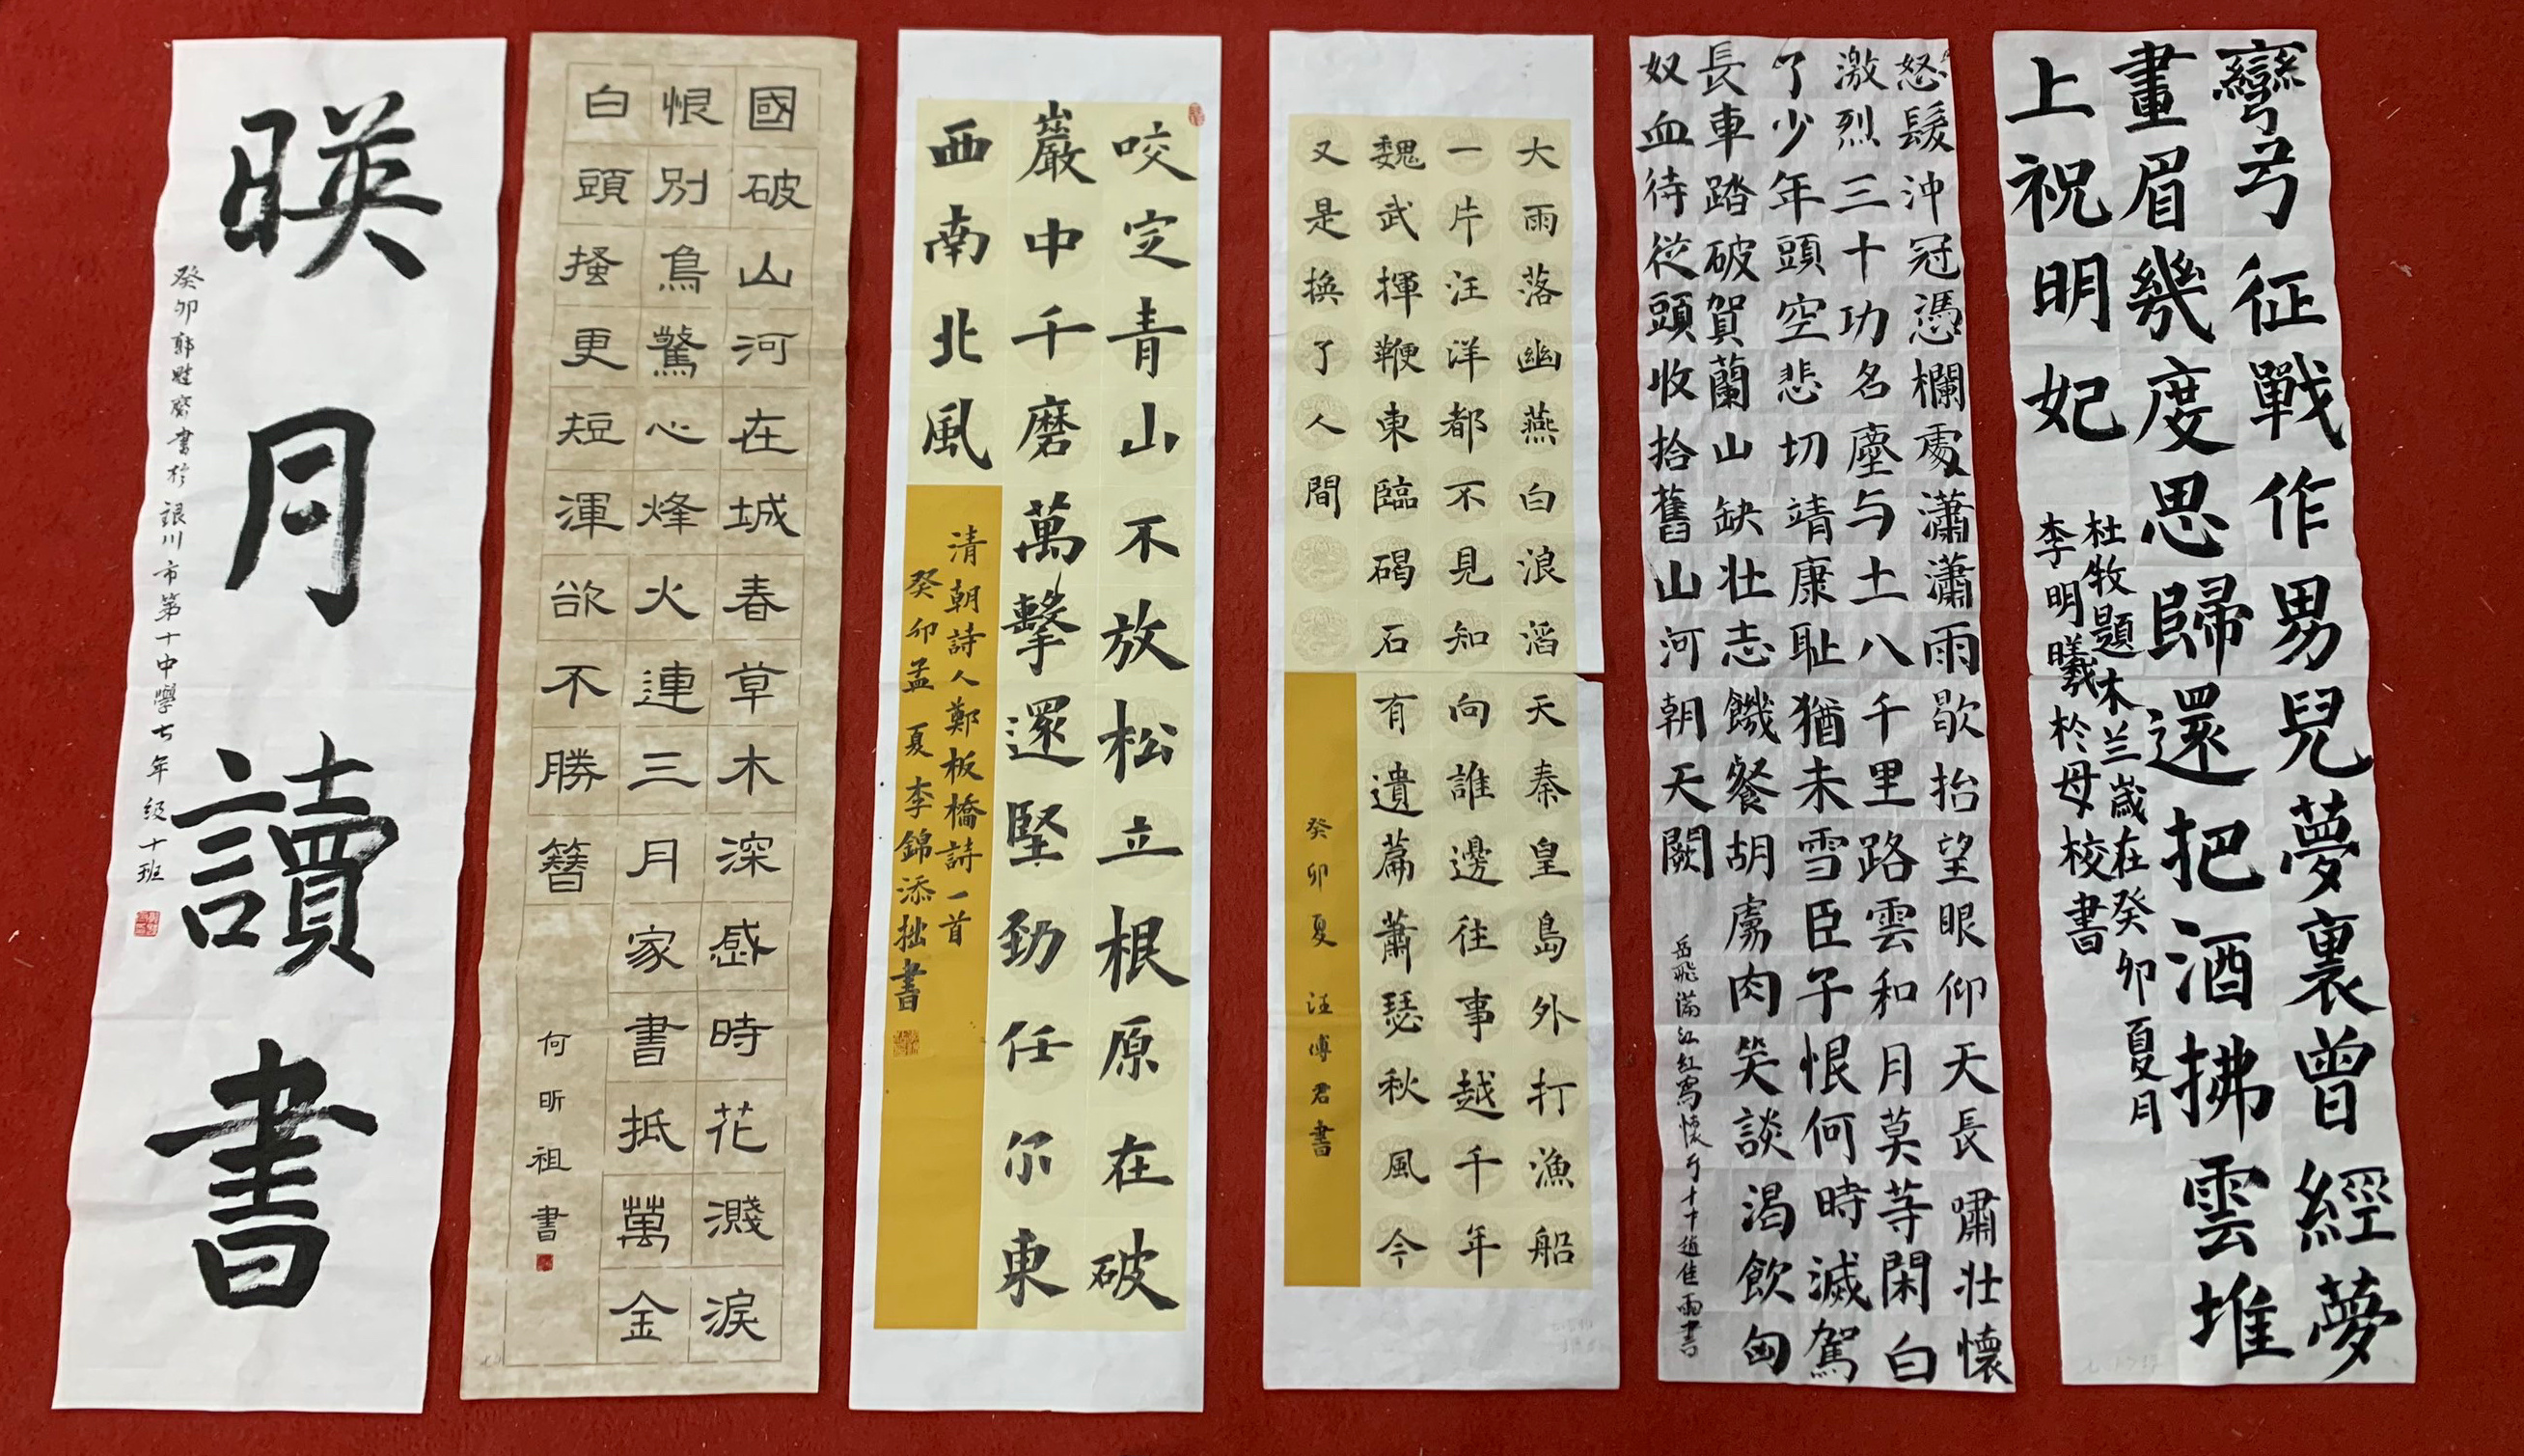 彎弓征戰作男兒夢裏曾經夢
畫眉幾度思歸還把酒拂雲堆
上祝明妃
杜牧題木兰歲在癸卯夏月
李明曦於母校書
怒髮沖冠憑欄處瀟瀟雨歇抬望眼仰天長嘯壯懷
激烈三十功名塵与土八千里路雲和月莫等閑白
了少年頭空悲切靖康恥猶未雪臣子恨何時滅駕
長車踏破賀蘭山缺壯志饑餐胡虜肉笑談渴飲匈
奴血待從頭收拾舊山河朝天闕
岳飛滿江紅寫懷于十中趙佳雨書
大雨落幽燕白浪滔天秦皇島外打漁船
一片汪洋都不見知向誰邊往事越千年
魏武揮鞭東臨碣石有遺篇蕭瑟秋風今
又是換了人間
癸卯夏 汪傅君書
咬定青山不放松立根原在破
巖中千磨萬擊還堅劲任尔東
西南北風
清朝詩人鄭板橋詩一首
癸卯孟夏李錦添拙書
國破山河在城春草木深感時花濺淚
恨別鳥驚心烽火連三月家書抵萬金
白頭搔更短渾欲不勝簪
何昕祖書
暎月讀書
癸卯郭書於銀川市第十中學七年级十班